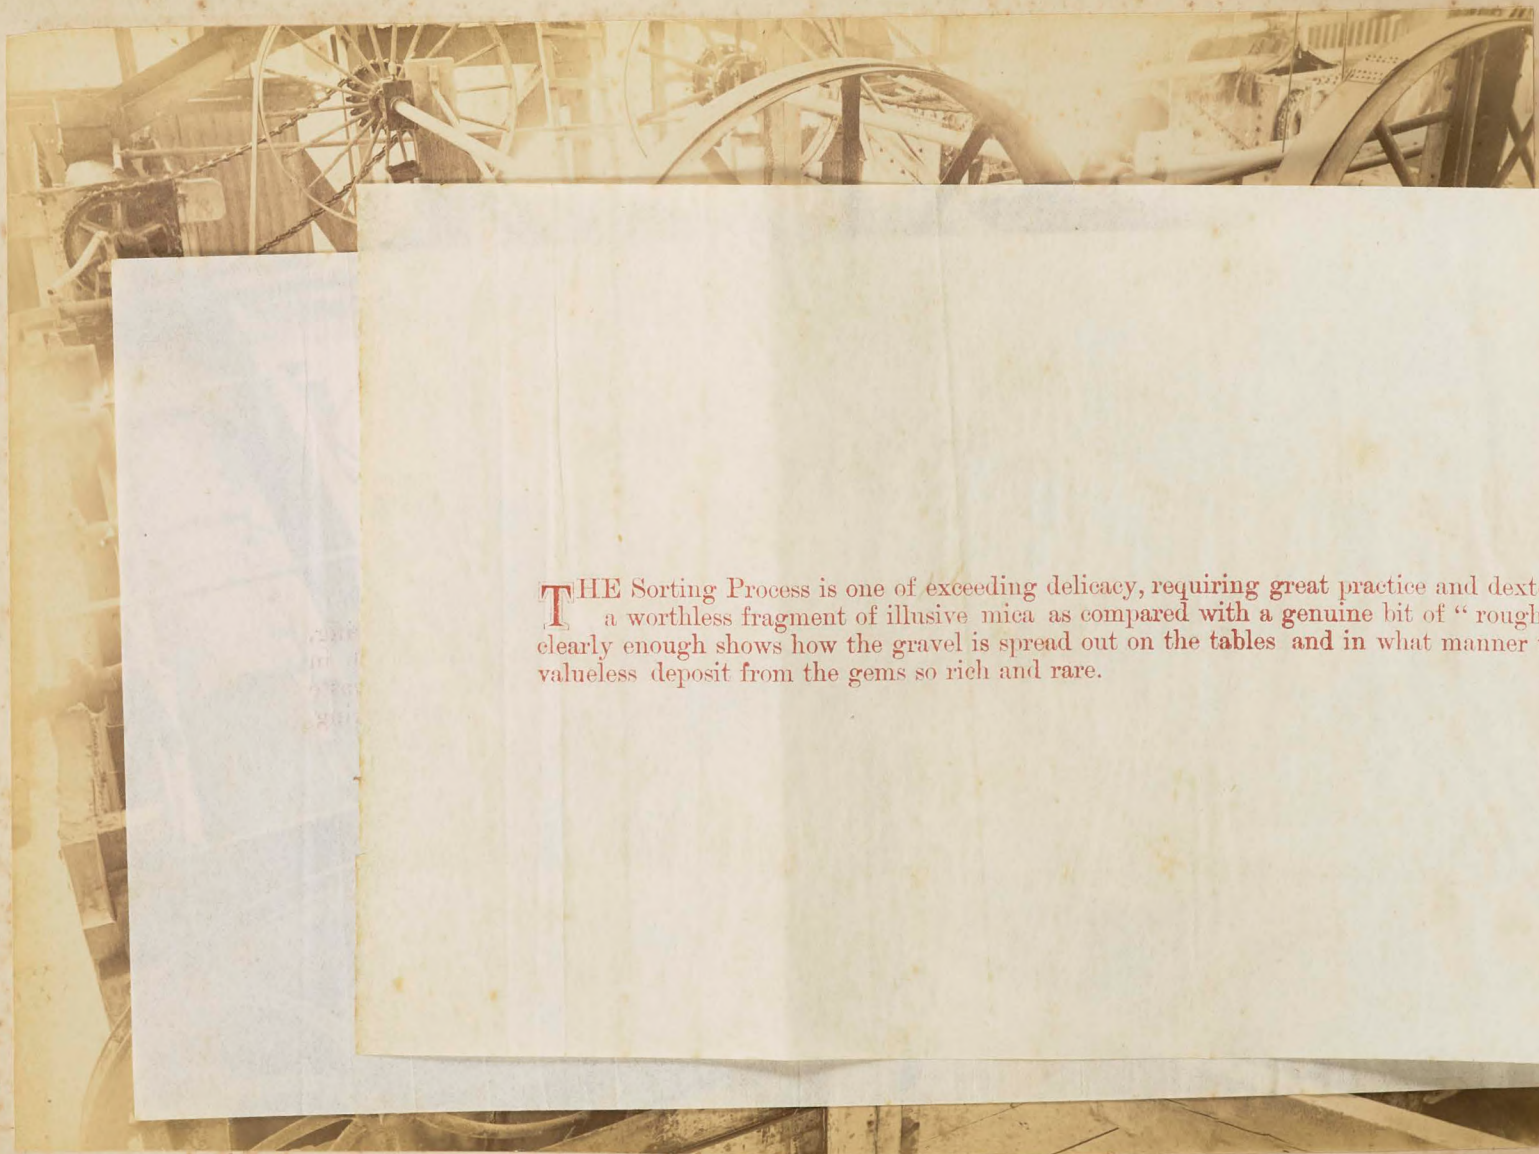 THE Sorting Process is one of exceeding delicacy, requiring great practice and dext
a worthless fragment of illusive mica as compared with a genuine bit of “ rough
clearly enough shows how the gravel is spread out on the tables and in what manner
valueless deposit from the gems so rich and rare.